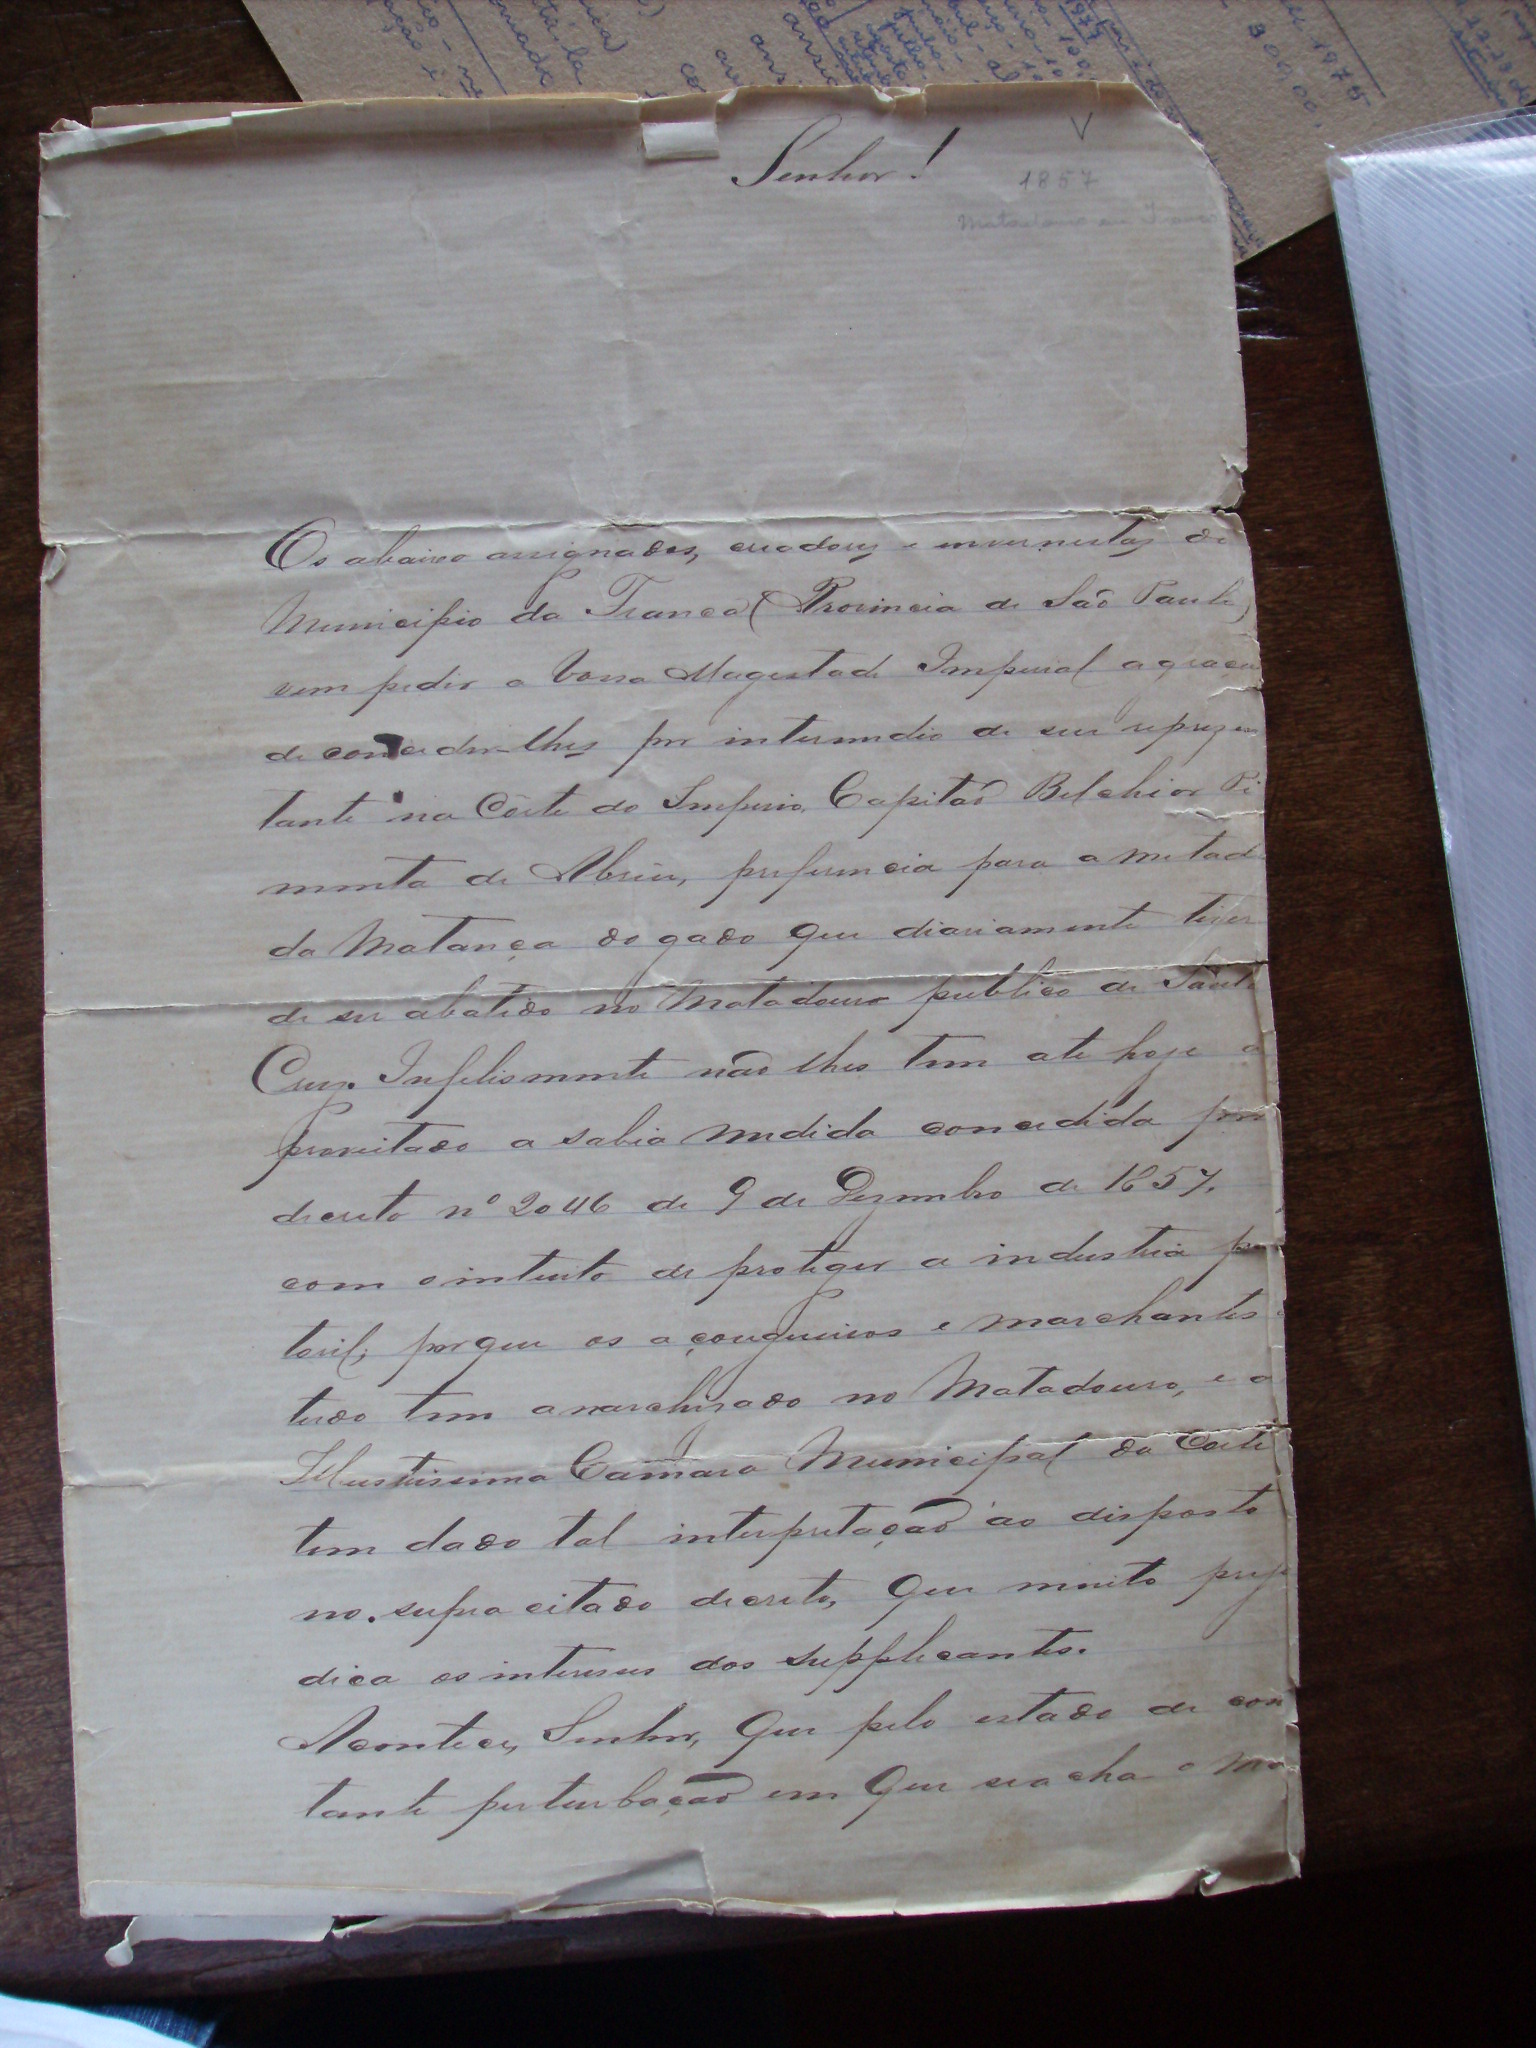 Senhor!
1857
Matadouro em Franca
Os abaixo assignados, creadores e invernistas do
Municipio da Franca (Provincia de São Paulo)
vem pedir a Vossa Magestade Imperial a graça
de conceder-lhes por intermedio de seu reprezen
tante na Côrte do Imperio, Capitão Belchior Pi
menta de Abreu, preferencia para a metade
da Matança do gado que diariamente tiver
de ser abatido no Matadouro publico de Santa
Cruz. Infelismente não lhes tem ate hoje a
proveitado a sabia medida concedida por
decreto nº 2046 de 9 de Dezembro de 1857,
com o intuito de proteger a industria pas
toril; porque os açougueiros e marchantes
tudo tem anarchizado no Matadouro, e a
Illustrissima Camara Municipal da Corte
tem dado tal interpretação ao disposto
no supra citado decreto, que muito preju
dica os interesses dos supplicantes.
Acontece, Senhor, que pelo estado de cons
tante perturbação em que se acha o Ma
1977
1976
300,00